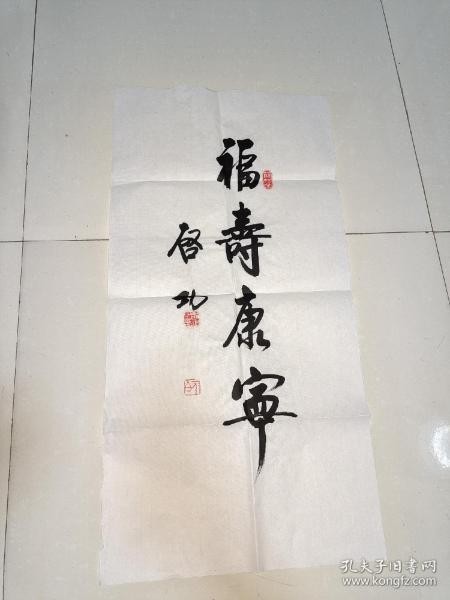 福壽康寧
啓功
孔夫子旧书网
www.kongfz.com